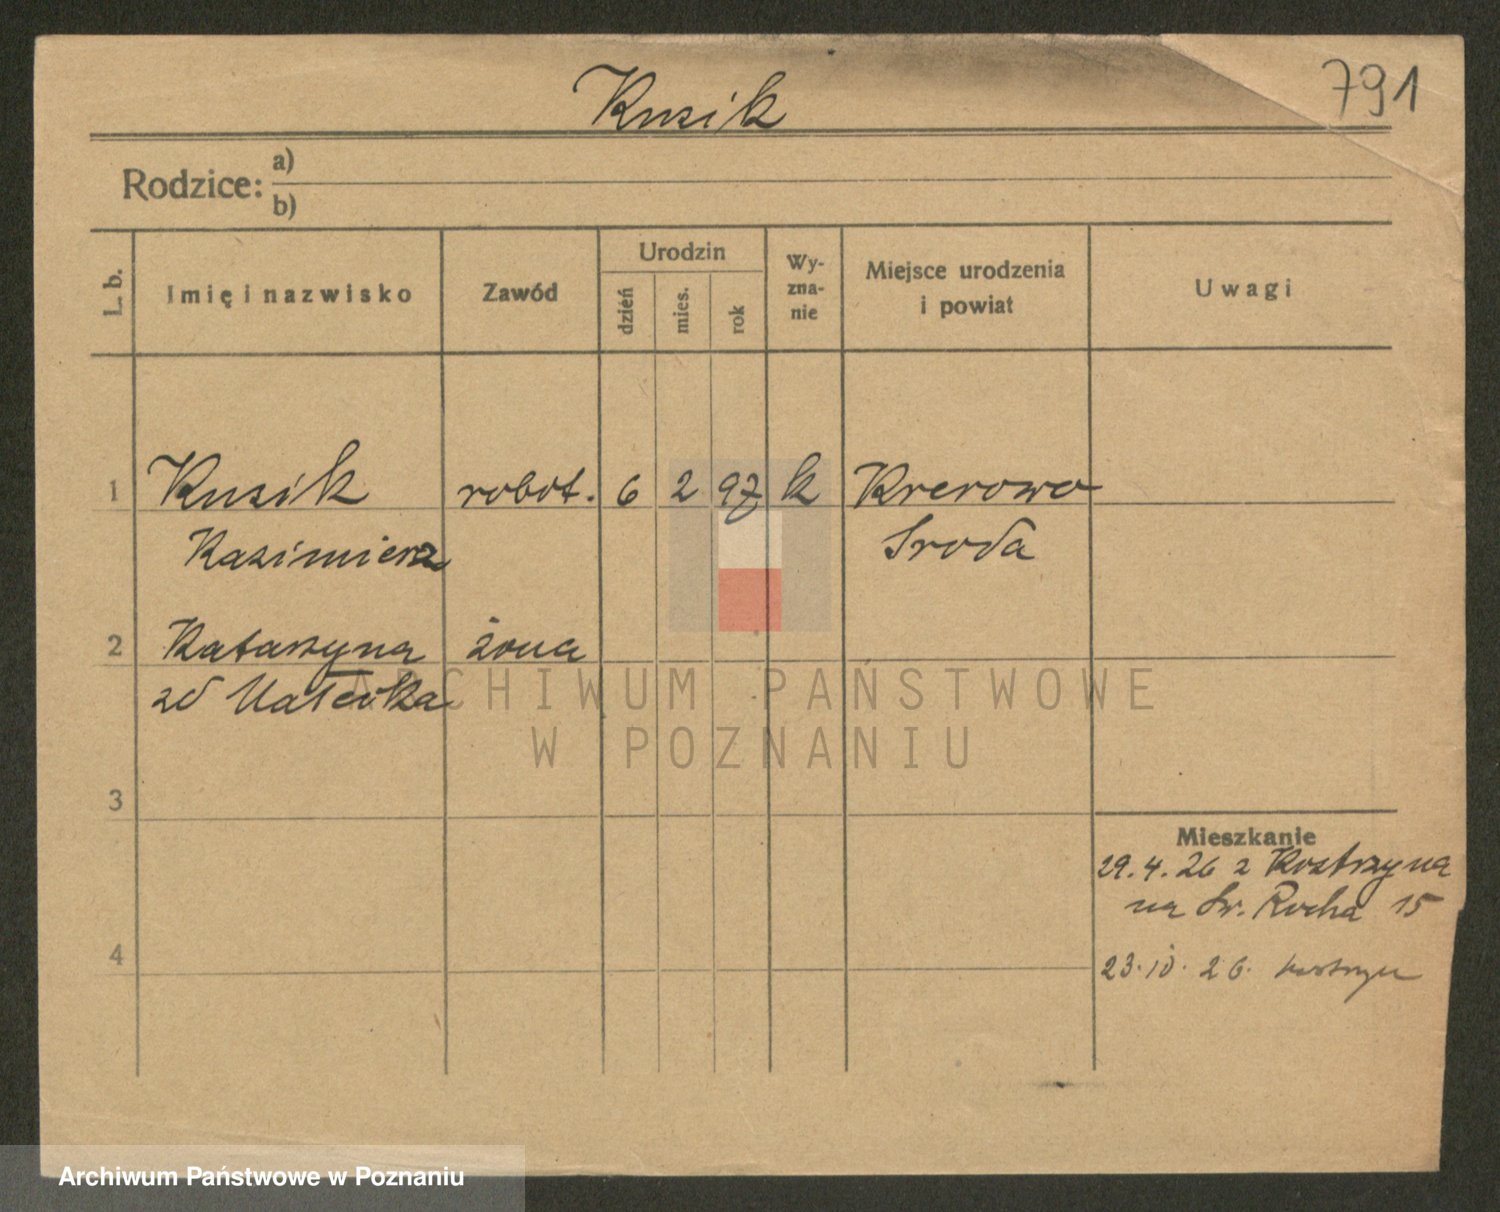 Kusik
791
Rodzice: a)
b)
L. b.
Imię i nazwisko
Zawód
Urodzin
dzień
mies.
rok
Wy-
zna-
nie
Miejsce urodzenia
i powiat
Uwagi
1 Kusik robot. 6 2 97 k Krerowo
Kazimierz Sroda
2 Katarzyna żona
zd
3
4
Mieszkanie
29.4.26 z Kostrzyna
na Św. Rocha 15
23.10.26.
ARCHIWUM PAŃSTWOWE
W POZNANIU
Archiwum Państwowe w Poznaniu